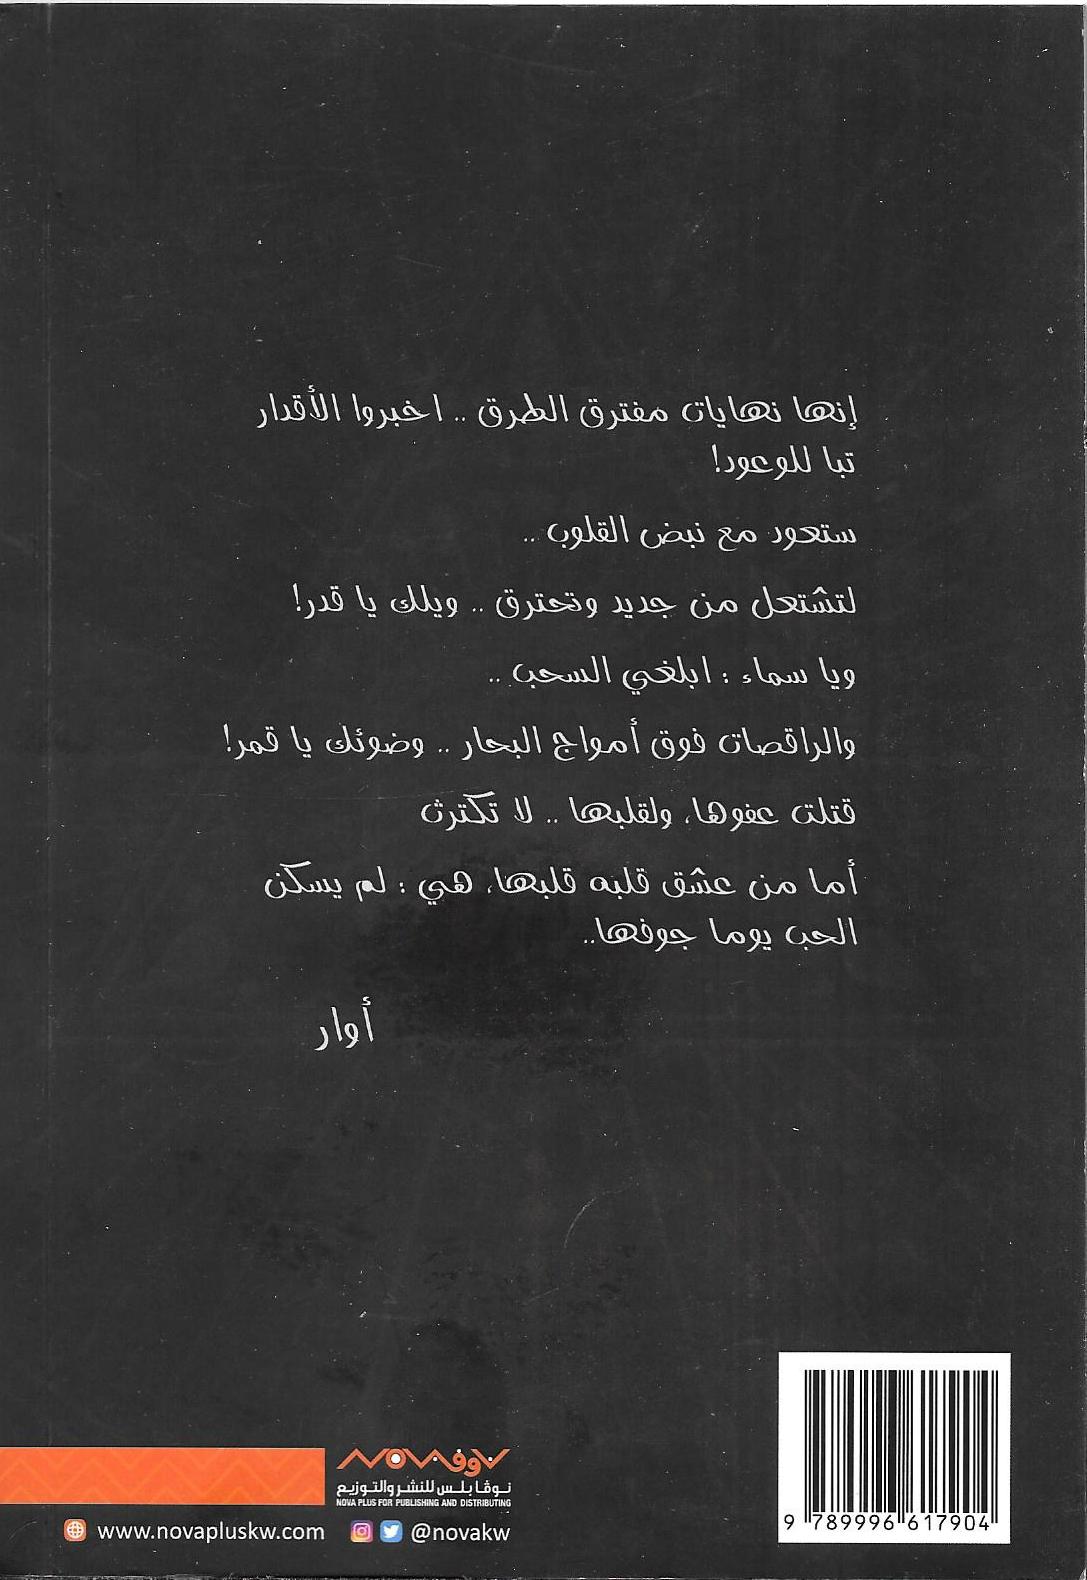 إنها نهايات مفترق الطرق .. اخبروا الأقدار
تبا للوعود!
ستعود مع نبض القلوب ..
لتشتعل من جديد وتحترق .. ويلك يا قدر!
ويا سماء : ابلغي السحب ..
والراقصات فوق أمواج البحار .. وضوئك يا قمر!
قتلت عفوها، ولقلبها .. لا تكترث
أما من عشق قلبه قلبها، هي : لم يسكن
الحب يوما جوفها..
أوار
نوفا NOVA
نوڤا بلس للنشر والتوزيع
NOVA PLUS FOR PUBLISHING AND DISTRIBUTING
www.novapluskw.com @novakw
9 789996 617904